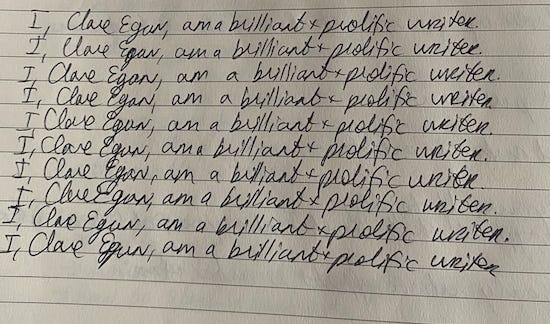 I, Clare Egan, am a brilliant + prolific writer.
I, Clare Egan, am a brilliant + prolific writer.
I, Clare Egan, am a brilliant + prolific writer.
I, Clare Egan, am a brilliant + prolific writer
I Clare Egan, am a brilliant + prolific writer.
I, Clare Egan, am a brilliant + prolific writer.
I, Clare Egan, am a brilliant + prolific writer.
I, Clare Egan, am a brilliant + prolific writer.
I, Clare Egan, am a brilliant + prolific writer.
I, Clare Egan, am a brilliant + prolific writer